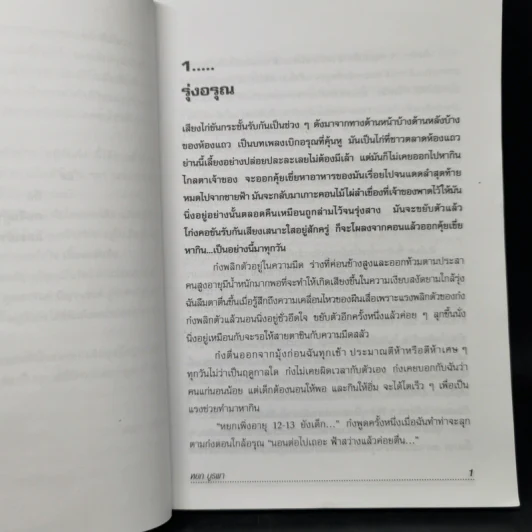 1.....
รุ่งอรุณ
เสียงไก่ขันกระชั้นรับกันเป็นช่วง ๆ ดังมาจากทางด้านหน้าบ้างด้านหลังบ้าง
ของห้องแถว เป็นบทเพลงเบิกอรุณที่คุ้นหู มันเป็นไก่ที่ชาวตลาดห้องแถว
ย่านนี้เลี้ยงอย่างปล่อยปละละเลยไม่ต้องมีเล้า แต่มันก็ไม่เคยออกไปหากิน
ไกลตาเจ้าของ จะออกคุ้ยเขี่ยหาอาหารของมันเรื่อยไปจนแดดลำสุดท้าย
หมดไปจากชายฟ้า มันจะกลับมาเกาะคอนไม้ไผ่ลำเขื่องที่เจ้าของพาดไว้ให้มัน
นิ่งอยู่อย่างนั้นตลอดคืนเหมือนถูกล่ามไว้จนรุ่งสาง มันจะขยับตัวแล้ว
โก่งคอขันรับกันเสียงเสนาะใสอยู่สักครู่ ก็จะโผลงจากคอนแล้วออกคุ้ยเขี่ย
หากิน...เป็นอย่างนี้มาทุกวัน
ก๋งพลิกตัวอยู่ในความมืด ร่างที่ค่อนข้างสูงและออกท้วมตามประสา
คนสูงอายุมีน้ำหนักมากพอที่จะทำให้เกิดเสียงขึ้นในความเงียบสงัดยามใกล้รุ่ง
ฉันลืมตาตื่นขึ้นเมื่อรู้สึกถึงความเคลื่อนไหวของผืนเสื่อเพราะแรงพลิกตัวของก๋ง
ก๋งพลิกตัวแล้วนอนนิ่งอยู่ชั่วอึดใจ ขยับตัวอีกครั้งหนึ่งแล้วค่อย ๆ ลุกขึ้นนั่ง
นิ่งอยู่เหมือนกับจะรอให้สายตาชินกับความมืดสลัว
ก๋งตื่นออกจากมุ้งก่อนฉันทุกเช้า ประมาณตีห้าหรือตีห้าเศษ ๆ
ทุกวันไม่ว่าเป็นฤดูกาลใด ก๋งไม่เคยผิดเวลากับตัวเอง ก๋งเคยบอกกับฉันว่า
คนแก่นอนน้อย แต่เด็กต้องนอนให้พอ และกินให้อิ่ม จะได้โตเร็ว ๆ เพื่อเป็น
แรงช่วยทำมาหากิน
"หยกเพิ่งอายุ 12-13 ยังเด็ก..." ก๋งพูดครั้งหนึ่งเมื่อฉันทำท่าจะลุก
ตามก๋งตอนใกล้อรุณ "นอนต่อไปเถอะ ฟ้าสว่างแล้วค่อยตื่น..."
หยก บูรพา
1